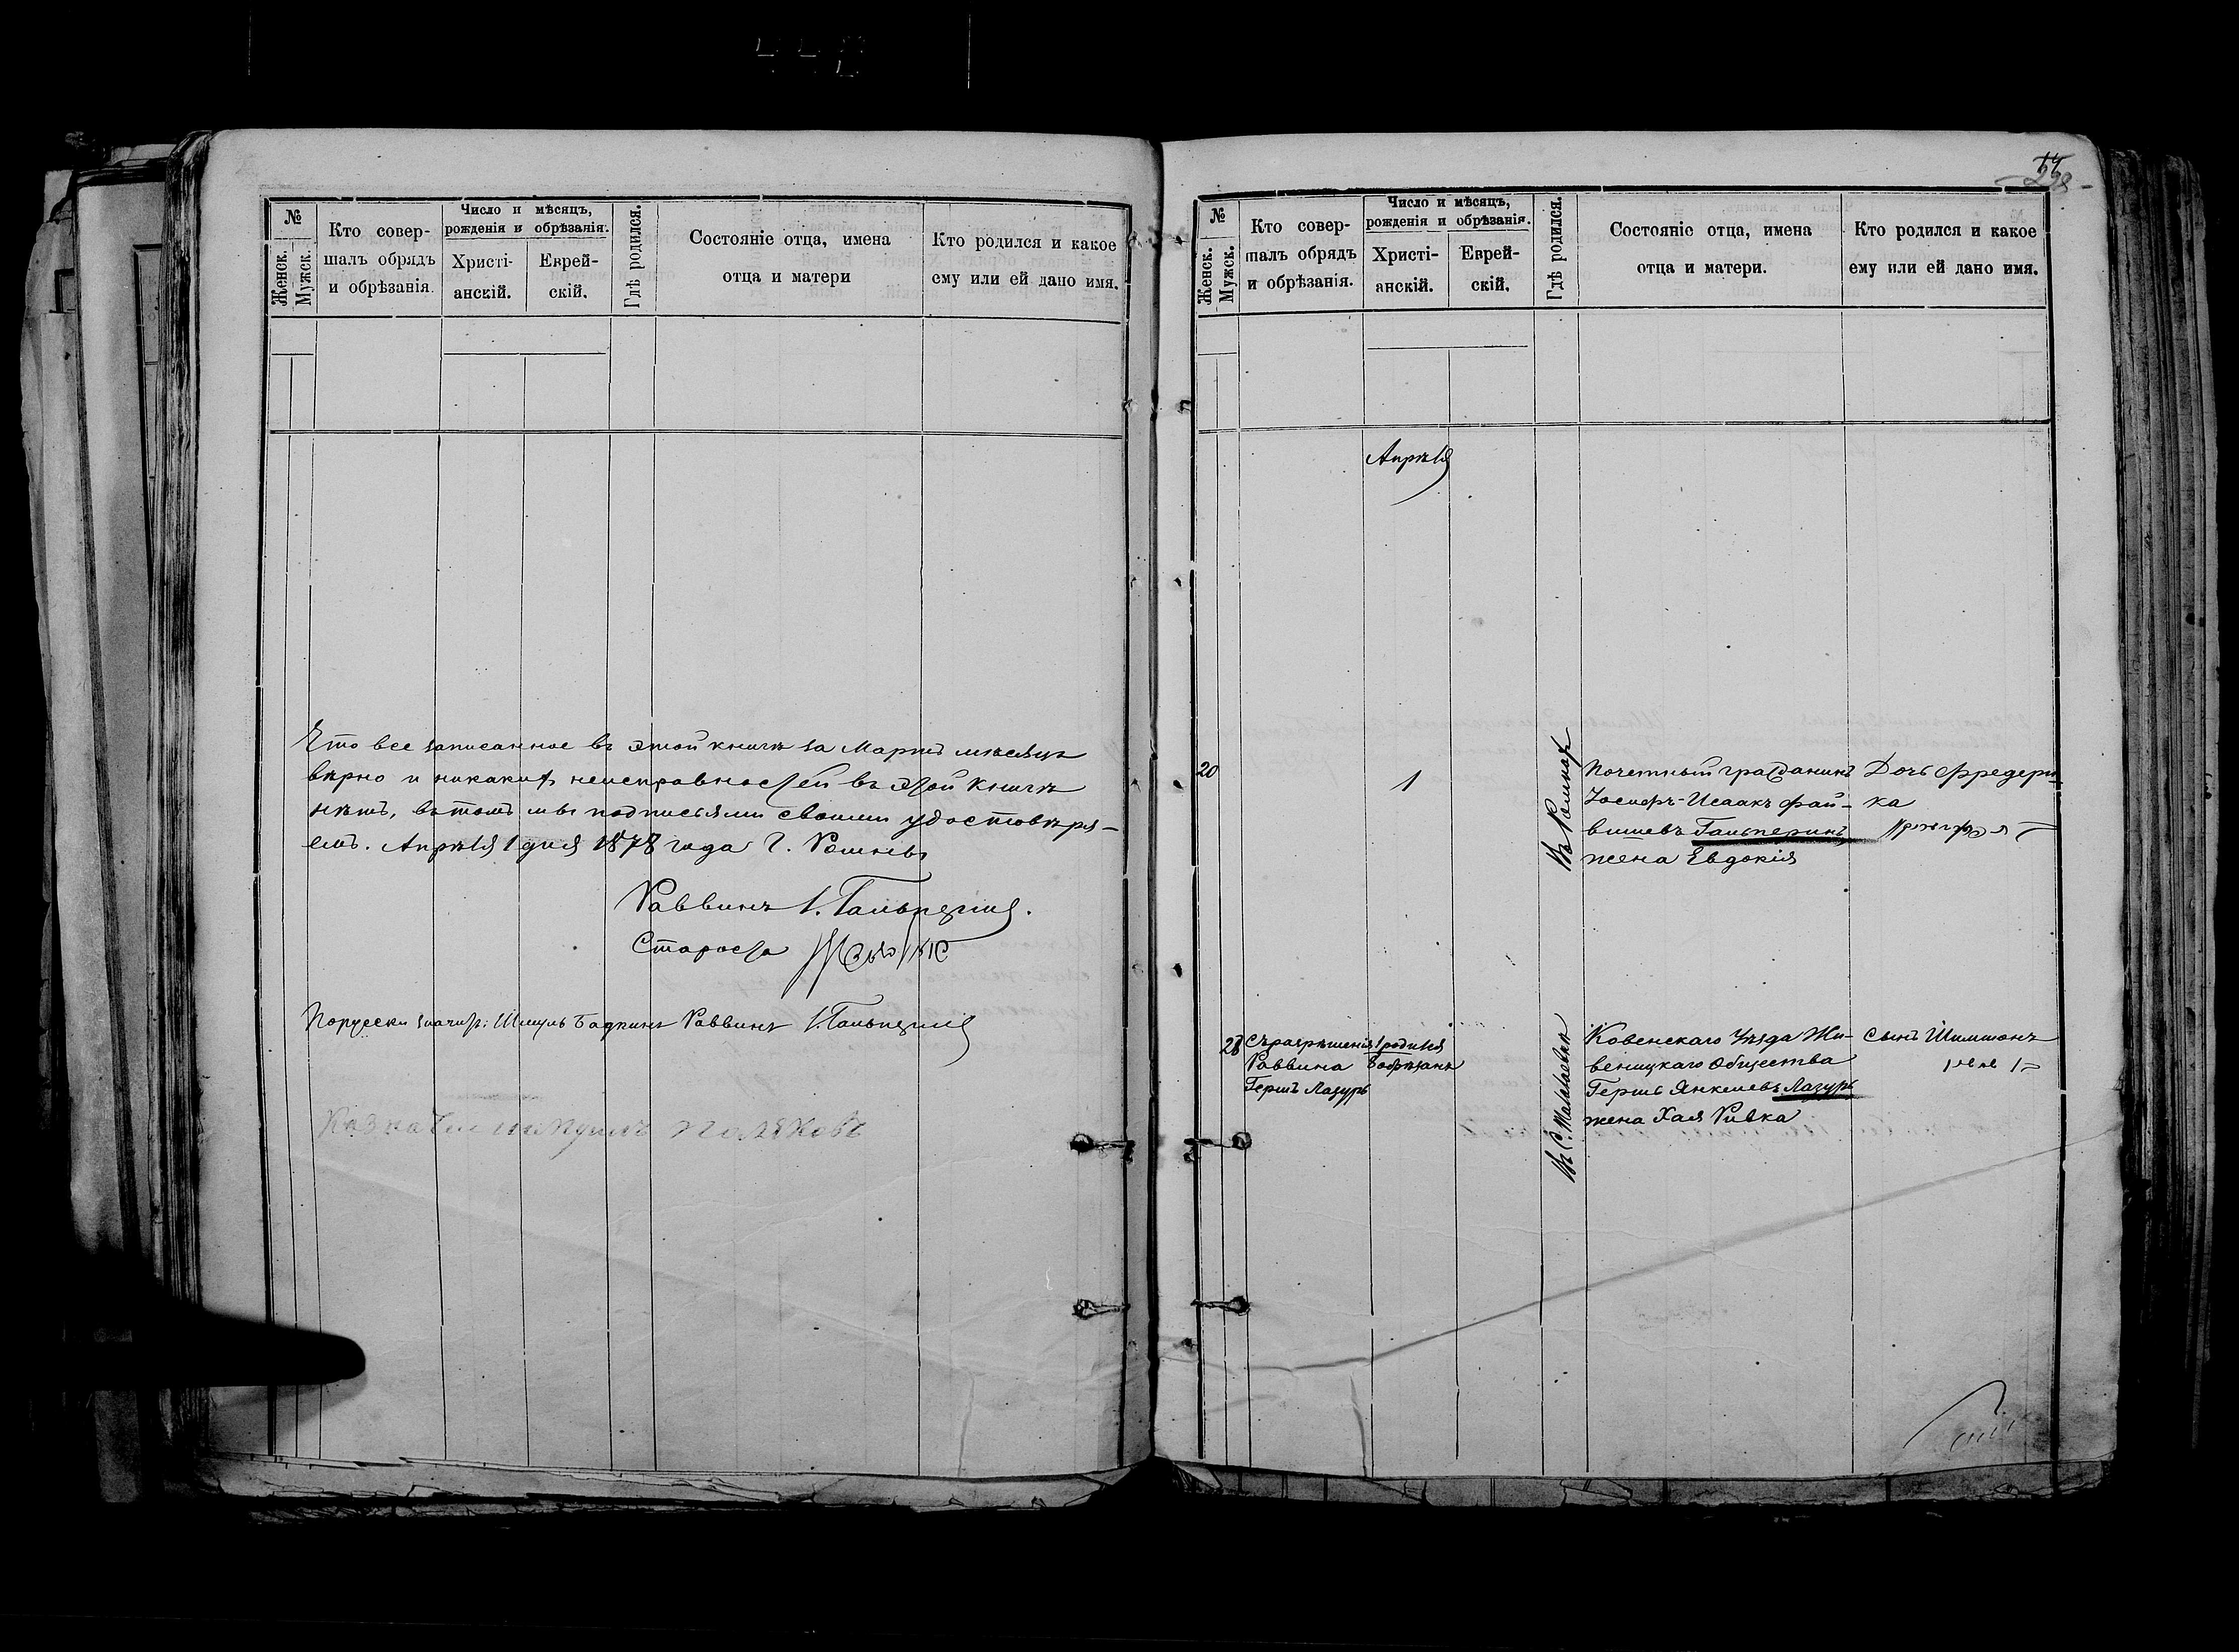 №
Женск.
Мужск.
Кто совер-
шалъ обрядъ
и обрѣзанія.
Число и мѣсяцъ,
рожденія и обрѣзанія.
Христі-
анскій.
Еврей-
скій.
Гдѣ родился.
Состояніе отца, имена
отца и матери
Кто родился и какое
ему или ей дано имя.
Что все записанное въ этой книгѣ за Мартъ мѣсяцъ
вѣрно и никакихъ неисправностей въ этой книгѣ
нѣтъ, въ томъ мы подписями своими удостовѣря-
емъ. Апрѣля 1 дня 1878 года Г. Ромны
Раввинъ І. Гальперинъ.
Староста
Порусски значитъ: Шмуль Раввинъ І. Гальперинъ
Казначеи Поляковъ
№
Женск.
Мужск.
Кто совер-
шалъ обрядъ
и обрѣзанія.
Число и мѣсяцъ,
рожденія и обрѣзанія.
Христі-
анскій.
Еврей-
скій.
Гдѣ родился.
Состояніе отца, имена
отца и матери.
Кто родился и какое
ему или ей дано имя.
Апрѣля
20
1
Въ Ромнахъ
Почетный гражданинъ
Іосифъ-Исаакъ Фай-
вишевъ Гальперинъ
жена Евдокія
Дочь Фредери-
ка
Съ разрѣшенія
Раввина
Гершъ Лазуръ
1 родился
8 обрѣзанъ
Ковенскаго Уѣзда
Общества
Гершъ Янкелевъ Лазуръ
жена Хая Ривка
Сынъ Шимшонъ